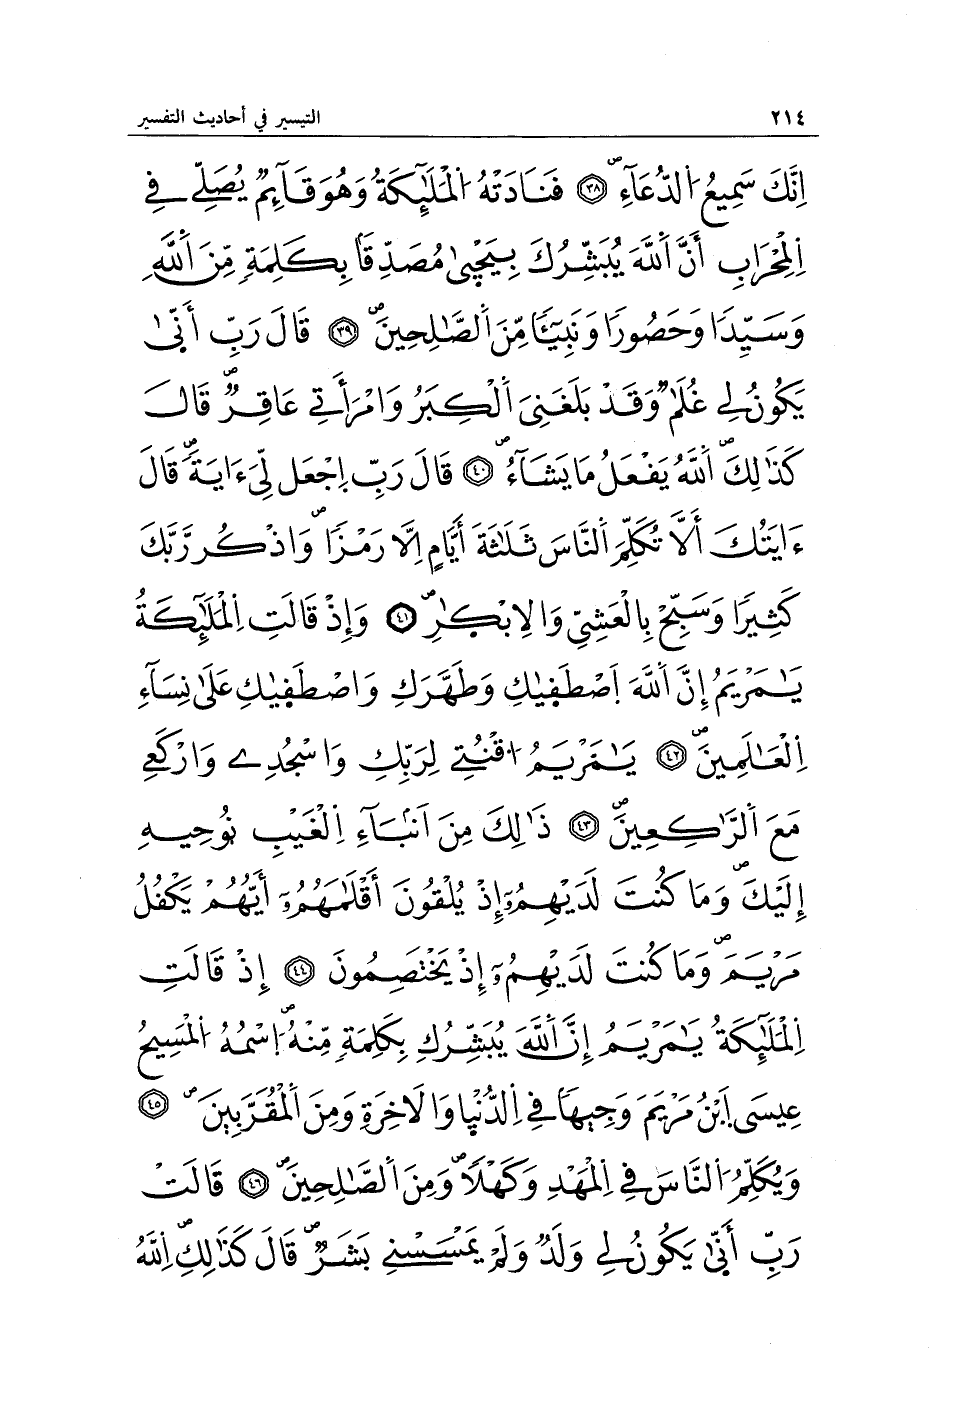 ٢١٤
التيسير في أحاديث التفسير
إِنَّكَ سَمِيعُ اُلدُّعَآءِۖ ٣٨ فَنَادَتْهُ اُلْمَلَٰٓئِكَةُ وَهُوَ قَآئِمٌ يُصَلِّے فِے
اِلْمِحْرَابِ أَنَّ اَللَّهَ يُبَشِّرُكَ بِيَحْيۭيٰ مُصَدِّقاَۢ بِكَلِمَةٖ مِّنَ اَللَّهِ
وَسَيِّداٗ وَحَصُوراٗ وَنَبِيٓـٔاٗ مِّنَ اَلصَّٰلِحِينَۖ ٣٩ قَالَ رَبِّ أَنّۭيٰ
يَكُونُ لِے غُلَٰمٞ وَقَدْ بَلَغَنِيَ اَلْكِبَرُ وَامْرَأَتِے عَاقِرٞۖ قَالَ
كَذَٰلِكَۖ اَللَّهُ يَفْعَلُ مَا يَشَآءُۖ ٤٠ قَالَ رَبِّ اِجْعَل لِّيَ ءَايَةٗۖ قَالَ
ءَايَتُكَ أَلَّا تُكَلِّمَ اَلنَّاسَ ثَلَٰثَةَ أَيَّامٍ اِلَّا رَمْزاٗۖ وَاذْكُر رَّبَّكَ
كَثِيراٗ وَسَبِّحْ بِالْعَشِيِّ وَالِابْكٰ۪رِۖ ٤١ وَإِذْ قَالَتِ اِلْمَلَٰٓئِكَةُ
يَٰمَرْيَمُ إِنَّ اَللَّهَ اَصْطَفۭيٰكِ وَطَهَّرَكِ وَاصْطَفۭيٰكِ عَلَىٰ نِسَآءِ
اِلْعَٰلَمِينَۖ ٤٢ يَٰمَرْيَمُ اُقْنُتِے لِرَبِّكِ وَاسْجُدِے وَارْكَعِے
مَعَ اَلرَّٰكِعِينَۖ ٤٣ ذَٰلِكَ مِنَ اَنۢبَآءِ اِلْغَيْبِ نُوحِيهِ
إِلَيْكَۖ وَمَا كُنتَ لَدَيْهِمُۥٓ إِذْ يُلْقُونَ أَقْلَٰمَهُمُۥٓ أَيُّهُمْ يَكْفُلُ
مَرْيَمَۖ وَمَا كُنتَ لَدَيْهِمُۥٓ إِذْ يَخْتَصِمُونَ ٤٤ إِذْ قَالَتِ
اِلْمَلَٰٓئِكَةُ يَٰمَرْيَمُ إِنَّ اَللَّهَ يُبَشِّرُكِ بِكَلِمَةٖ مِّنْهُۖ اُسْمُهُ اُلْمَسِيحُ
عِيسَى اَبْنُ مَرْيَمَ وَجِيهاٗ فِے اِلدُّنْيۭا وَالَاخِرَةِ وَمِنَ اَلْمُقَرَّبِينَۖ ٤٥
وَيُكَلِّمُ اُلنَّاسَ فِے اِلْمَهْدِ وَكَهْلاٗۖ وَمِنَ اَلصَّٰلِحِينَۖ ٤٦ قَالَتْ
رَبِّ أَنّۭيٰ يَكُونُ لِے وَلَدٞ وَلَمْ يَمْسَسْنِے بَشَرٞۖ قَالَ كَذَٰلِكِۖ اِللَّهُ